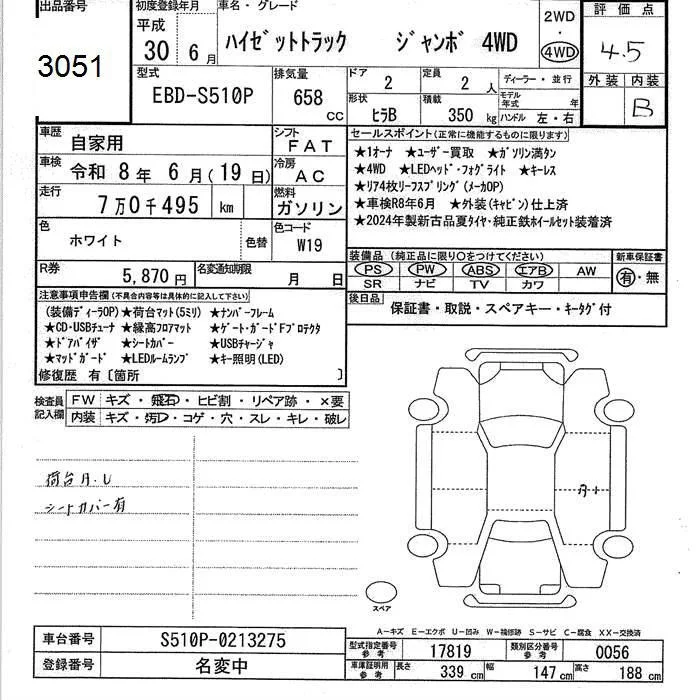 出品番号
3051
初度登録年月
平成
30 6月
車名・グレード
ハイゼットトラック ジャンボ 4WD
2WD
・
4WD
評価点
4.5
外装 内装
B
型式
EBD-S510P
排気量
658
CC
ドア
2
定員
2人
ディーラー・並行
モデル年式 年
形状
ヒラB
積載
350kg
ハンドル 左・右
車歴
自家用
シフト
FAT
車検
令和 8年 6月(19日)
冷房
AC
走行
7万0千495 km
燃料
ガソリン
色
ホワイト
色替
色コード
W19
R券
5,870円
名変通知期限
月 日
セールスポイント(正常に機能するものに限ります)
★1オーナ ★ユーザー買取 ★ガソリン満タン
★4WD ★LEDヘッド・フォグライト ★キーレス
★リア4枚リーフスプリング(メーカOP)
★車検R8年6月 ★外装(キャビン)仕上済
★2024年製新古品夏タイヤ・純正鉄ホイールセット装着済
装備品(純正品に限り○をつけてください)
PS PW ABS エアB AW
SR ナビ TV カワ
新車保証書
有・無
後日品
保証書・取説・スペアキー・キータグ付
注意事項申告欄(不具合内容等は具体的に記入して下さい)
(装備ディーラOP)★荷台マット(5ミリ) ★ナンバーフレーム
★CD・USBチューナ ★縁高フロアマット ★ゲート・ガードFプロテクタ
★ドアバイザ ★シートカバー ★USBチャージャ
★マッドガード ★LEDルームランプ ★キー照明(LED)
修復歴 有〔箇所 〕
検査員記入欄
FW キズ・飛石・ヒビ割・リペア跡・×要
内装 キズ・汚れ・コゲ・穴・スレ・キレ・破レ
荷台A.U
シートカバー有
スペア
A-キズ E-エクボ U-凹み W-補修跡 S-サビ C-腐食 XX-交換済
車台番号
S510P-0213275
登録番号
名変中
型式指定番号参考
17819
類別区分番号参考
0056
車庫証明用参考
長さ 339cm 幅 147cm 高さ 188cm